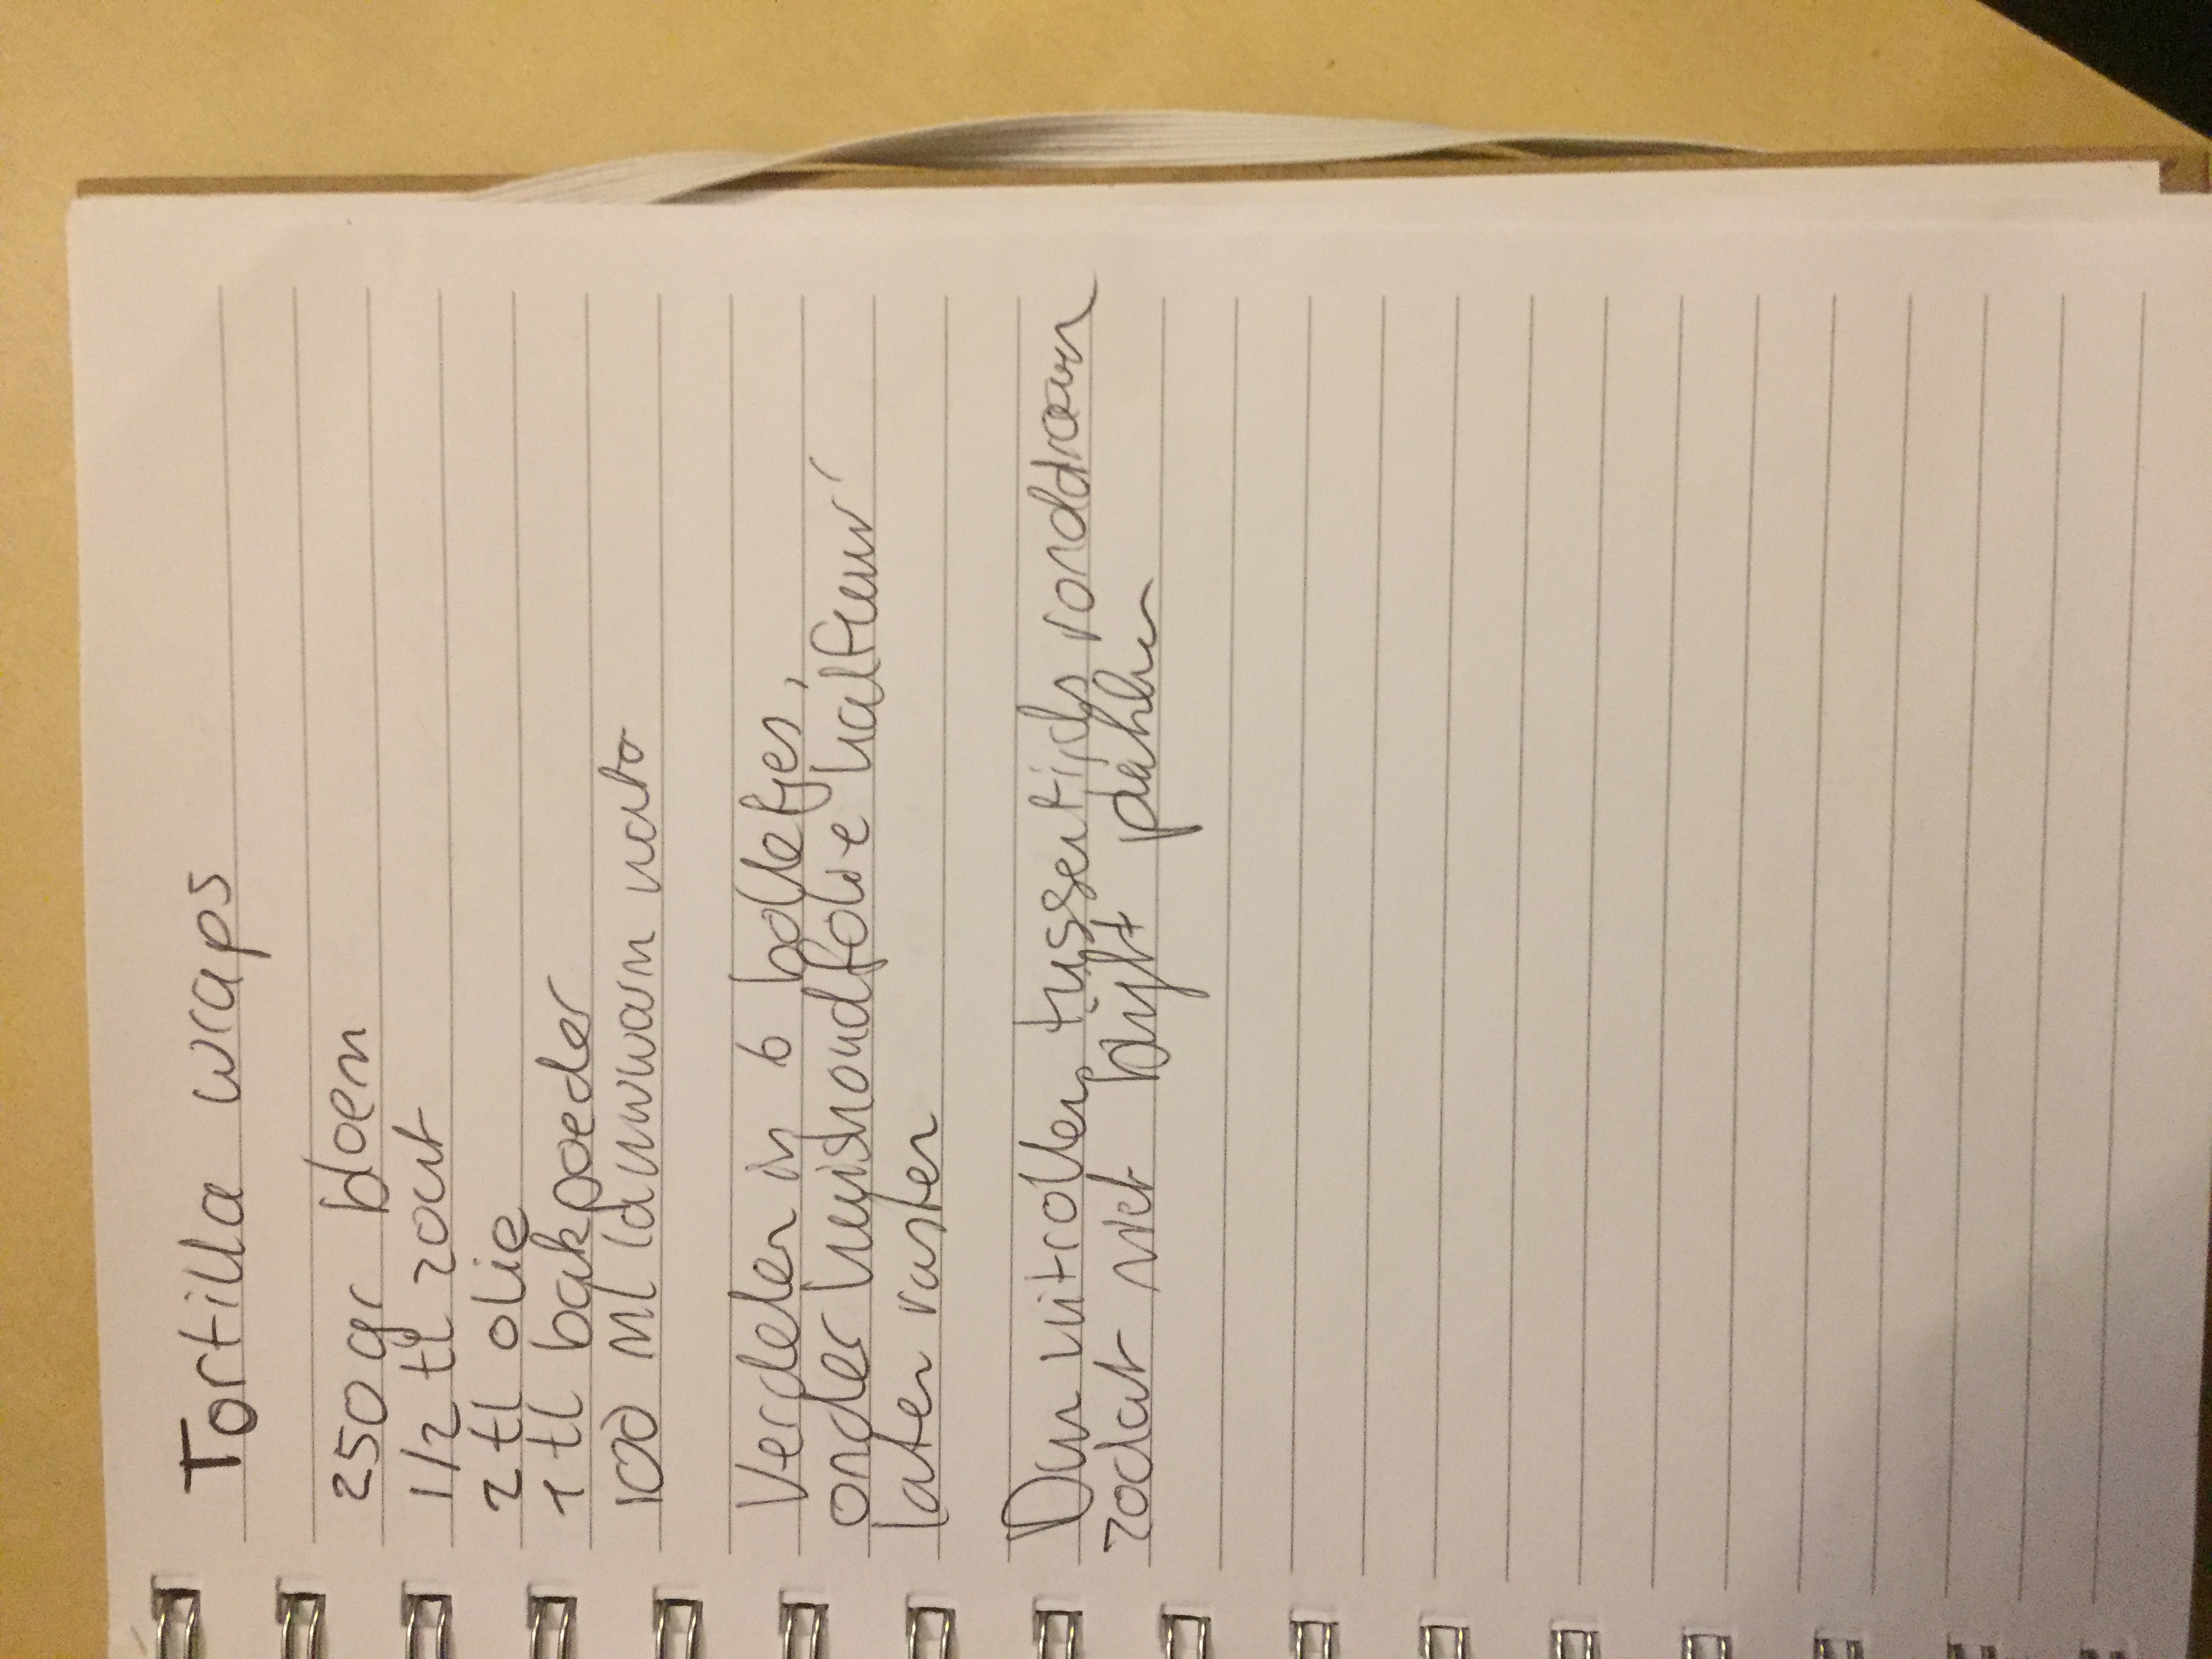 Tortilla wraps
250 gr bloem
1/2 tl zout
2 tl olie
1 tl bakpoeder
100 ml lauwwarm water
Verdelen in 6 bolletjes,
onder huishoudfolie half uur
laten rusten
Dun uitrollen, tussentijds ronddraaien
zodat niet blijft plakken